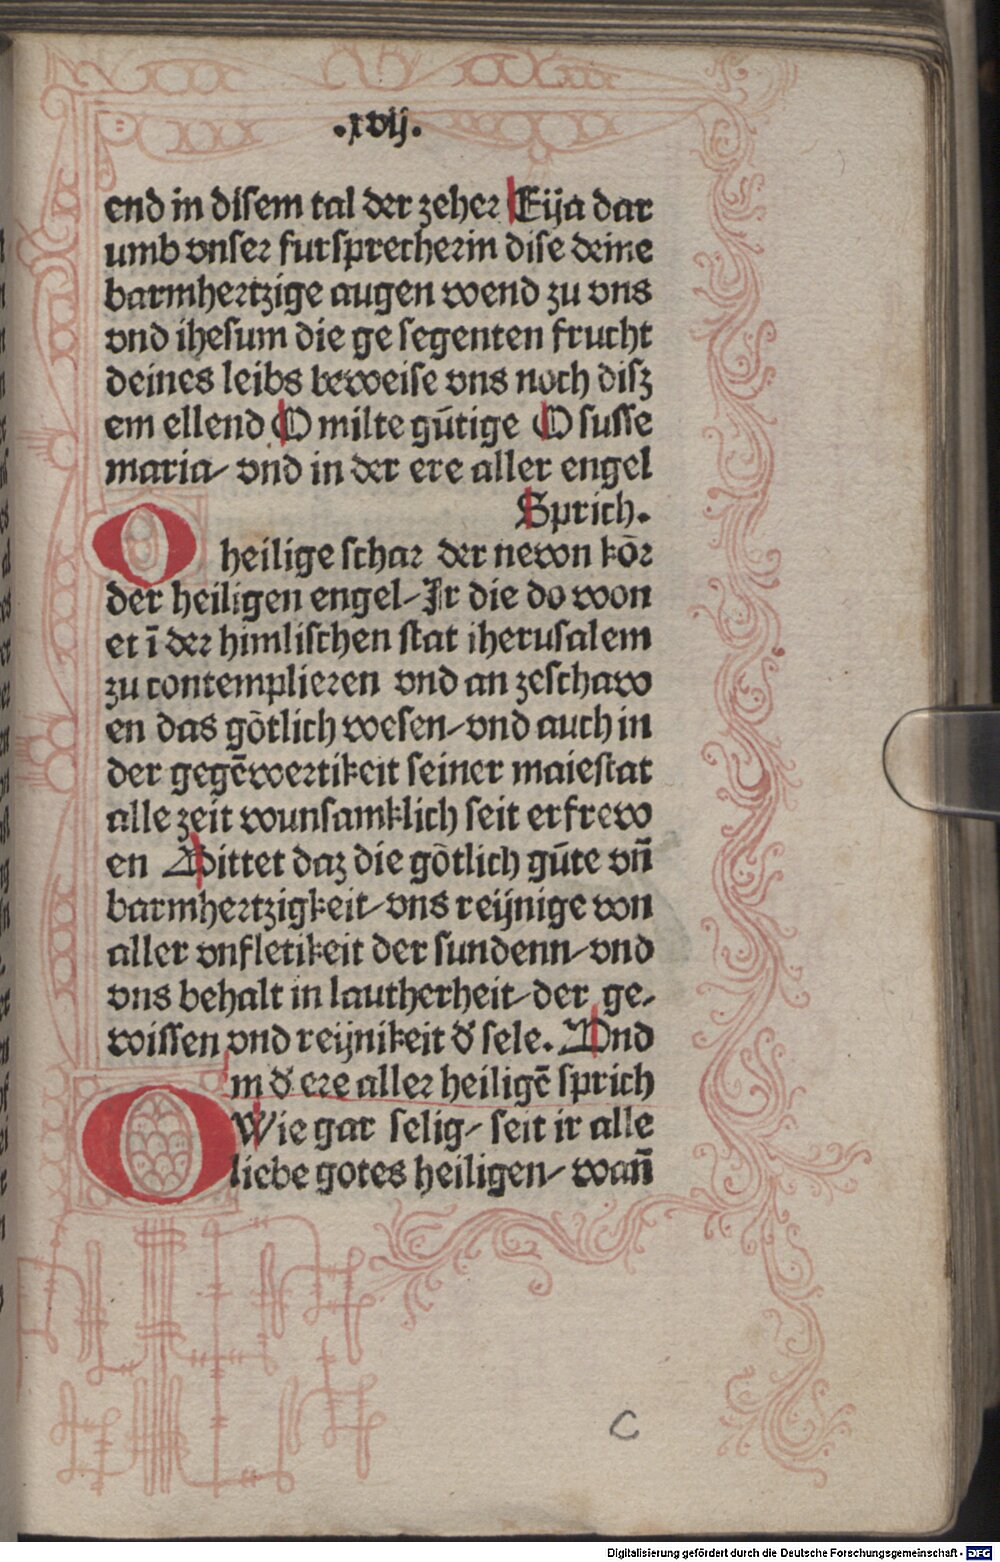 .xvij.
end in disem tal der zeher Eija dar
umb vnser fursprecherin dise deine
barmhertzige augen wend zu vns
vnd ihesum die ge segenten frucht
deines leibs beweise vns noch disz
em ellend O milte gūtige O susse
maria⸗ vnd in der ere aller engel
Sprich.
O heilige schar der newn kōr
der heiligen engel⸗ Ir die do won
et ī der himlischen stat iherusalem
zu contemplieren vnd an zeschaw
en das gōtlich wesen⸗ vnd auch in
der gegēwertikeit seiner maiestat
alle zeit wunsamklich seit erfrew
en Bittet daz die gōtlich gūte vn̄
barmhertzigkeit⸗ vns reijnige von
aller vnfletikeit der sundenn⸗ vnd
vns behalt in lautherheit⸗ der ge⸗
wissen vnd reijnikeit d' sele. Vnd
in d' ere aller heiligē sprich
O Wie gar selig⸗ seit ir alle
liebe gotes heiligen⸗ wan̄
C
Digitalisierung gefördert durch die Deutsche Forschungsgemeinschaft - DFG